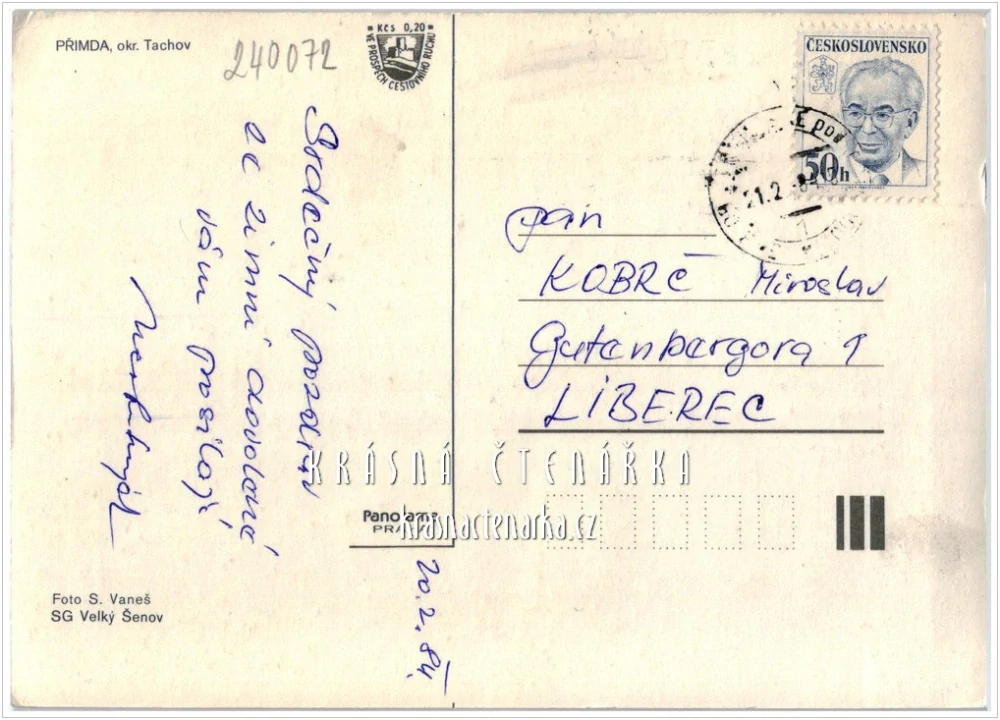 PŘIMDA, okr. Tachov
240072
Kčs 0,20
VE PROSPĚCH CESTOVNÍHO RUCHU
ČESKOSLOVENSKO
50h
21.2
Srdečný pozdrav
ze zimní dovolené
vám posílají
20.2.84.
pan
KOBRČ Miroslav
Gutenbergova 1
LIBEREC
KRÁSNÁ ČTENÁŘKA
krasnactenarka.cz
Panorama
Foto S. Vaneš
SG Velký Šenov